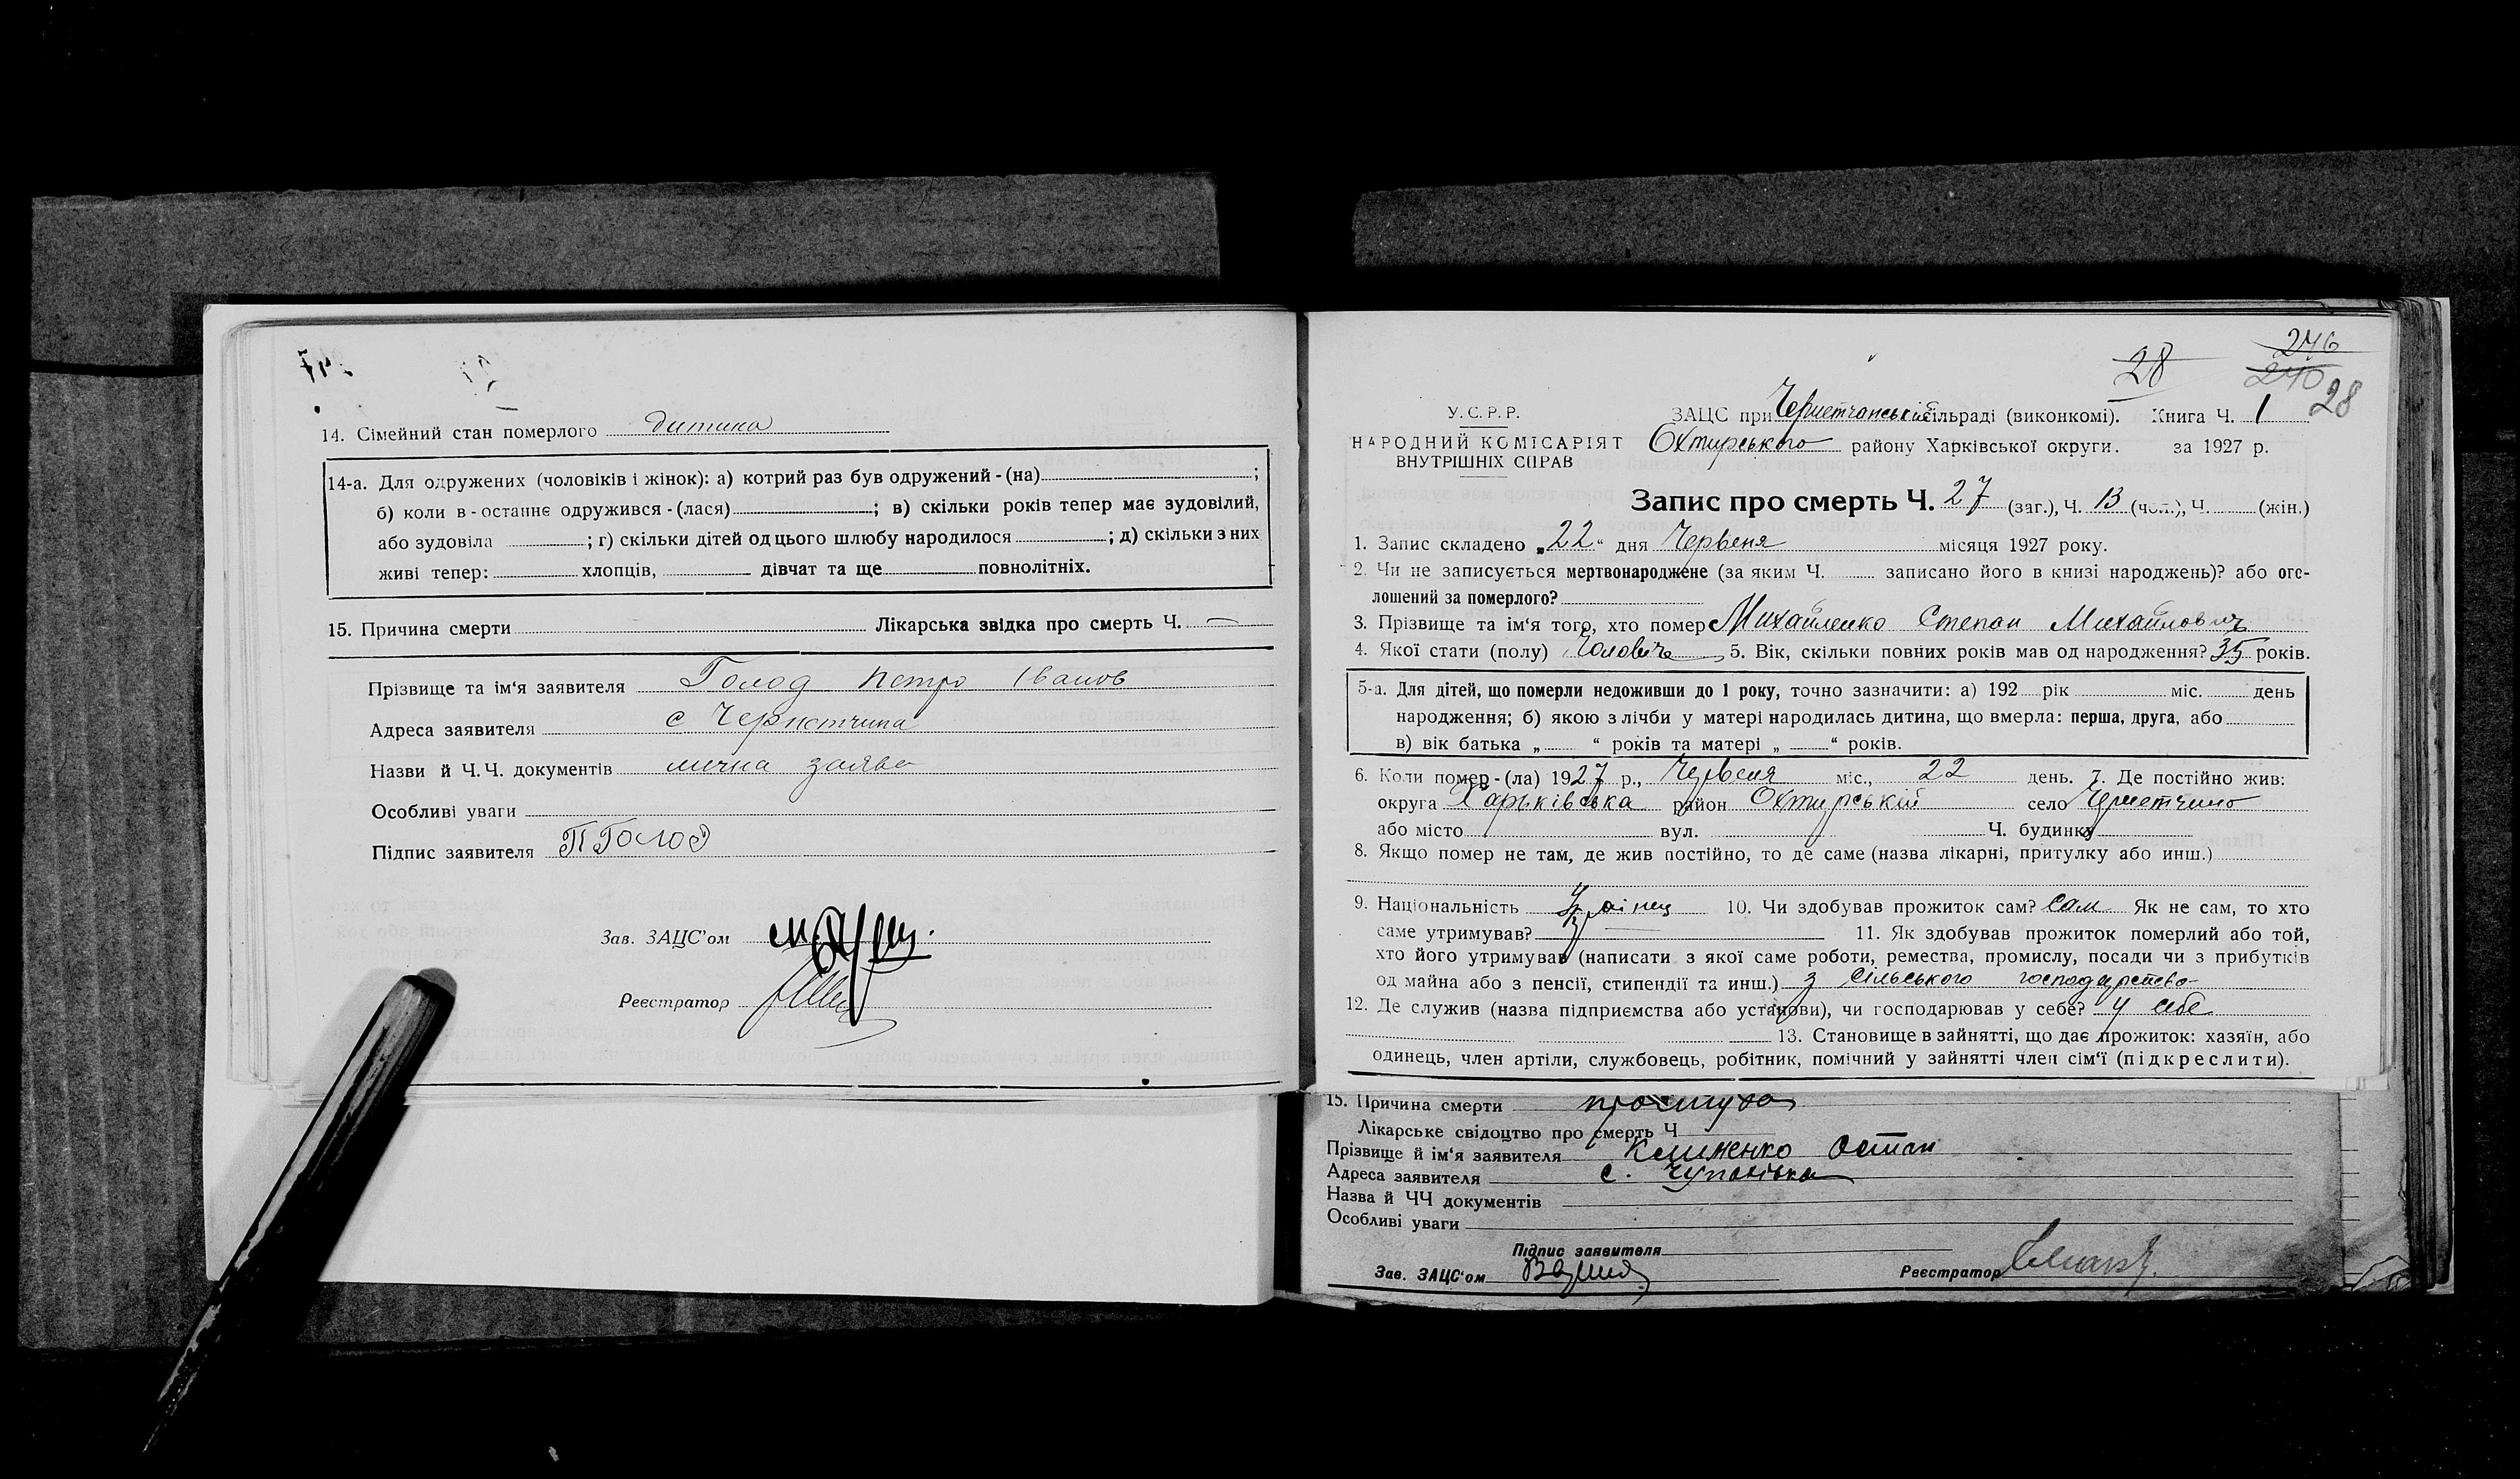 14. Сімейний стан померлого дитина
14-а. Для одружених (чоловіків і жінок): а) котрий раз був одружений - (на) ;
б) коли в - останнє одружився - (лася) ; в) скільки років тепер має зудовілий,
або зудовіла ; г) скільки дітей од цього шлюбу народилося ; д) скільки з них
живі тепер: хлопців, дівчат та ще повнолітніх.
15. Причина смерти Лікарська звідка про смерть Ч. —
Прізвище та ім'я заявителя Голод Петро Іванов
Адреса заявителя с Чернетчина
Назви й Ч.Ч. документів лична заява
Особливі уваги
Підпис заявителя П Голод
Зав. ЗАЦС'ом
Реєстратор
28 246
240 28
У.С.Р.Р. ЗАЦС при Чернетчанській сільраді (виконкомі). Книга Ч. 1
НАРОДНИЙ КОМІСАРІЯТ Охтирського району Харківської округи. за 1927 р.
ВНУТРІШНІХ СПРАВ
Запис про смерть Ч. 27 (заг.), Ч. 13 (чол.), Ч. (жін.)
1. Запис складено „22“ дня Червеня місяця 1927 року.
2. Чи не записується мертвонароджене (за яким Ч. записано його в книзі народжень)? або ого-
лошений за померлого?
3. Прізвище та ім'я того, хто помер Михайленко Степан Михайлович
4. Якої стати (полу) Чоловіч 5. Вік, скільки повних років мав од народження? 35 років.
5-а. Для дітей, що померли недоживши до 1 року, точно зазначити: а) 192 рік міс. день
народження; б) якою з лічби у матері народилась дитина, що вмерла: перша, друга, або
в) вік батька „ “ років та матері „ “ років.
6. Коли помер - (ла) 1927 р., Червеня міс., 22 день. 7. Де постійно жив:
округа Харьківська район Охтирській село Чернетчино
або місто вул. Ч. будинку
8. Якщо помер не там, де жив постійно, то де саме (назва лікарні, притулку або инш.)
9. Національність Украінец 10. Чи здобував прожиток сам? Сам Як не сам, то хто
саме утримував? 11. Як здобував прожиток померлий або той,
хто його утримував (написати з якої саме роботи, ремества, промислу, посади чи з прибутків
од майна або з пенсії, стипендії та инш.) з сільського господарство
12. Де служив (назва підприємства або установи), чи господарював у себе? у себе
13. Становище в зайнятті, що дає прожиток: хазяїн, або
одинець, член артіли, службовець, робітник, помічний у зайнятті член сім'ї (підкреслити).
15. Причина смерти простуда
Лікарське свідоцтво про смерть Ч
Прізвище й ім'я заявителя Клименко Остап
Адреса заявителя с. Чупахівка
Назва й ЧЧ документів
Особливі уваги
Підпис заявителя
Зав. ЗАЦС'ом Реєстратор